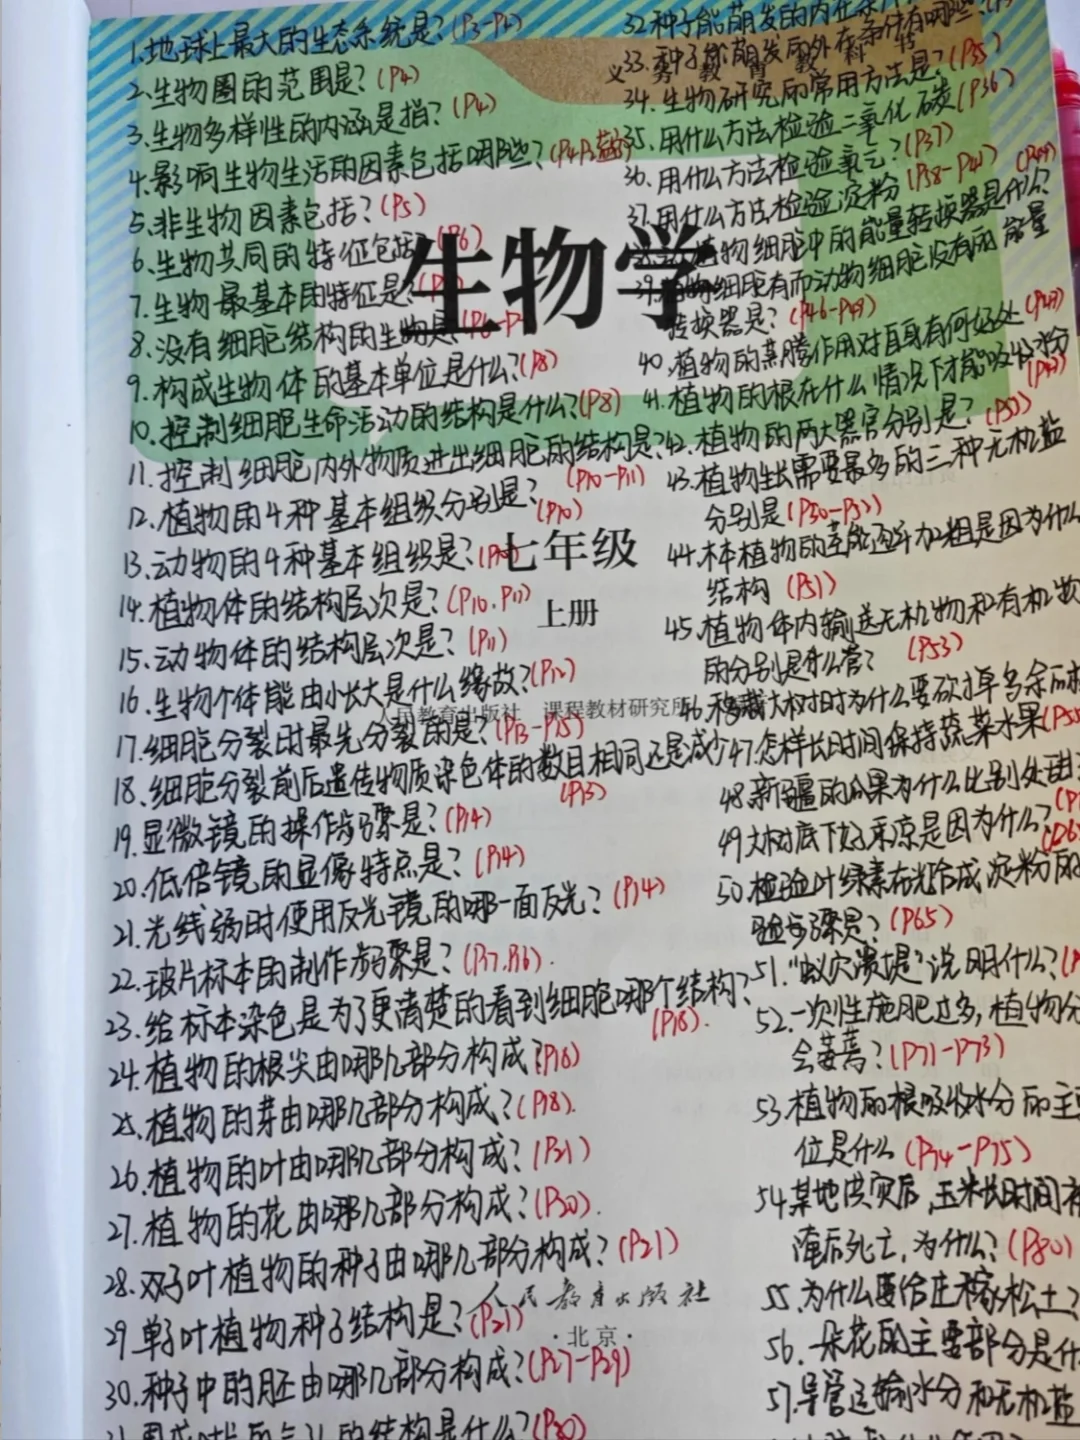 1.地球上最大的生态系统是?(P3-P12)
2.生物圈的范围是?(P4)
3.生物多样性的内涵是指?(P4)
4.影响生物生活的因素包括哪些?
5.非生物因素包括?(P5)
6.生物共同的特征包括
7.生物最基本的特征是?
8.没有细胞结构的生物是
9.构成生物体的基本单位是什么?(P8)
10.控制细胞生命活动的结构是什么?(P8)
11.控制细胞内外物质进出细胞的结构是?
(P10-P11)
12.植物的4种基本组织分别是?
(P10)
13.动物的4种基本组织是?
14.植物体的结构层次是?(P10.P11)
15.动物体的结构层次是?(P11)
16.生物个体能由小长大是什么缘故?(P12)
17.细胞分裂时最先分裂的是?(P13-P15)
18.细胞分裂前后遗传物质染色体的数目相同还是减少
(P15)
19.显微镜的操作步骤是?(P14)
20.低倍镜的显像特点是?(P14)
21.光线弱时使用反光镜的哪一面反光?(P14)
22.玻片标本的制作步骤是?(P17.P16).
23.给标本染色是为了更清楚的看到细胞哪个结构?
(P18).
24.植物的根尖由哪几部分构成?(P16)
25.植物的芽由哪几部分构成?(P18).
26.植物的叶由哪几部分构成?(P21)
27.植物的花由哪几部分构成?(P20).
28.双子叶植物的种子由哪几部分构成?(P21)
29.单子叶植物种子结构是?(P21)
30.种子中的胚由哪几部分构成?(P27-P29)
的结构是什么?(P30)
32.种子能萌发的内在条件
33.种子能萌发的外在条件有哪些?
34.生物研究的常用方法是?(P35)
35.用什么方法检验二氧化碳(P36)
36.用什么方法检验氧气?(P37)
37.用什么方法检验淀粉(P38-P41)
植物细胞中的能量转换器是什么?
39.植物细胞有而动物细胞没有的能量
转换器是?(P46-P49)
40.植物的蒸腾作用对自身有何好处
41.植物的根在什么情况下才能吸收水分
42.植物的两大器官分别是?
43.植物生长需要最多的三种无机盐
分别是(P30-P31)
44.木本植物的茎能逐年加粗是因为什么
结构(P51)
45.植物体内输送无机物和有机物
的分别是什么管?(P53)
46.移栽大树时为什么要砍掉多余的
47.怎样长时间保持蔬菜水果(P55
48.新疆的瓜果为什么比别处甜
49.大树底下好乘凉是因为什么?
50.检验叶绿素在光合成淀粉的
验步骤是?(P65)
51."蚁穴溃堤"说明什么?
52.一次性施肥过多,植物
会萎蔫?(P71-P73)
53.植物的根吸收水分的主要
位是什么(P74-P75)
54.某地洪灾后,玉米长时间
淹后死亡,为什么?(P80)
55.为什么要给庄稼松土?
56.一朵花的主要部分是什
57.导管运输水分和无机盐
义务教育教科书
生物学
七年级
上册
人民教育出版社 课程教材研究所
人民教育出版社
·北京·